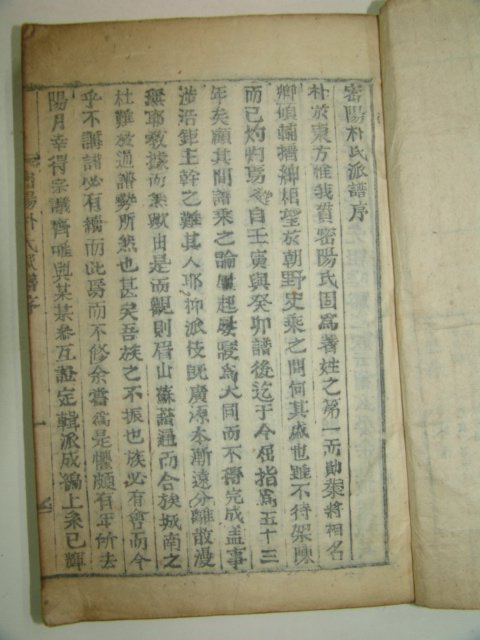 密陽朴氏派譜序
朴於東方惟我貫密陽氏固爲著姓之第一而勛業將相名
卿傾輔搢紳相望於朝野史乘之間何其盛也雖不待架陳
而已灼灼焉自壬寅與癸卯譜後迄于今屈指爲五十三
年矣顧其間譜乘之論屢起屢寢爲大同而不得完成盖事
涉浩鉅主幹之難其人耶抑派伎旣廣源本漸遠分離散漫
據而無歟由是而觀則眉山蘇譜通而合族城南之
杜難於通譜勢所然也甚矣吾族之不振也族必有會而今
乎不講譜必有續而此焉而不修余嘗爲是懼頗有年所去
陽月幸得宗議齊唯與某某參互證定輯派成編上系已輝
密陽朴氏派譜序 一